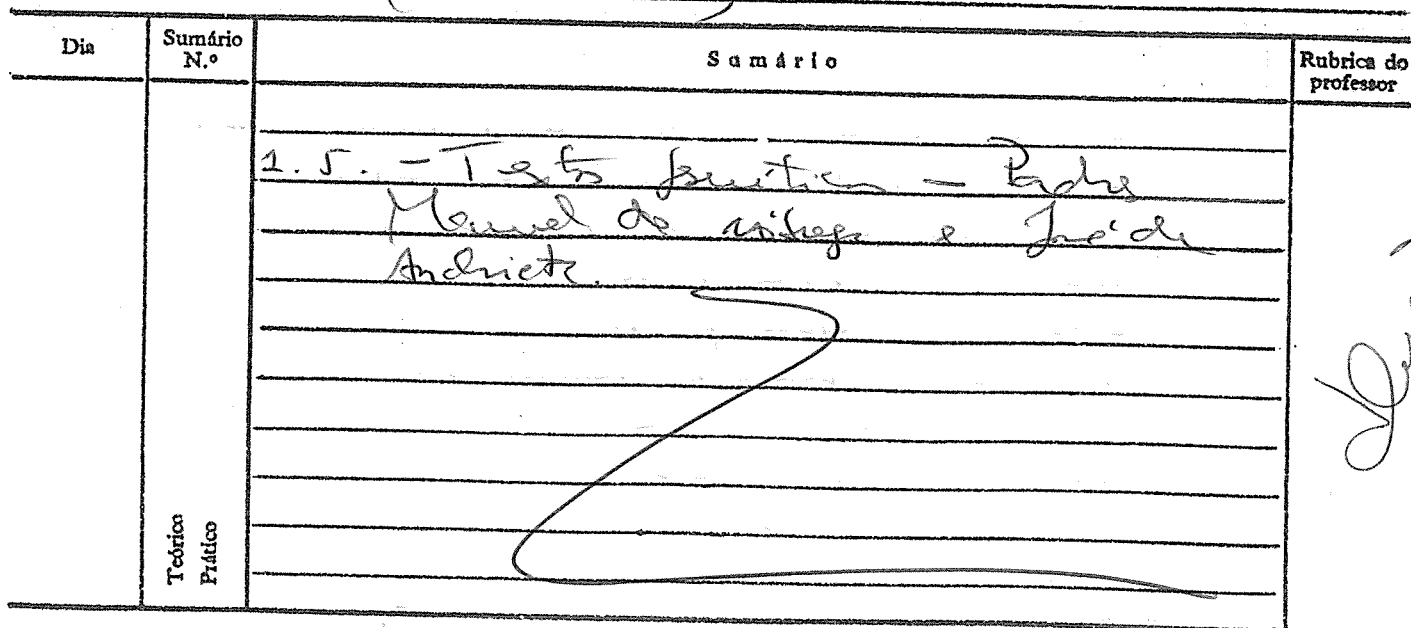 Dia
Sumário N.º
Sumário
Rubrica do professor
1.5. - Texto jesuíticos - Padre
Manuel da nóbrega e José de
Anchieta.
Teórico
Prático